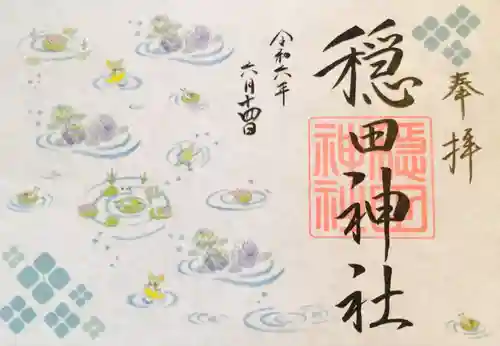 奉拝
穏田神社
隠田神社
令和六年
六月十四日